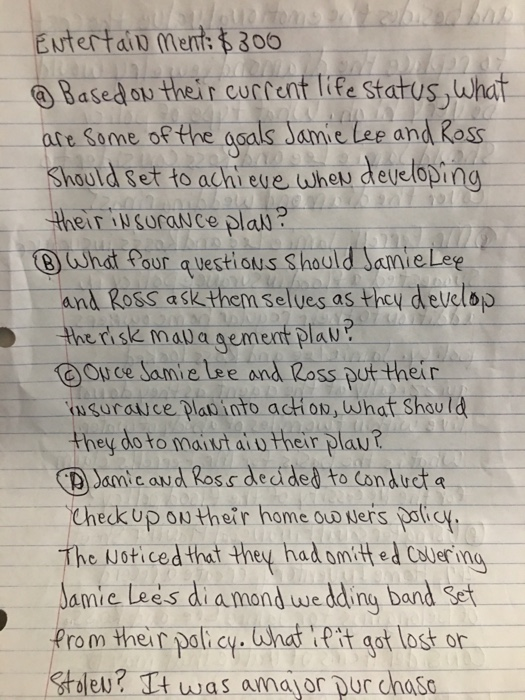 Entertainment: $300
(a) Based on their current life status, what
are some of the goals Jamie Lee and Ross
should set to achieve when developing
their insurance plan?
(B) What four questions should Jamie Lee
and Ross ask themselves as they develop
the risk management plan?
(C) Once Jamie Lee and Ross put their
insurance plan into action, what should
they do to maintain their plan?
(D) Jamie and Ross decided to conduct a
checkup on their home owner's policy.
The Noticed that they had omitted covering
Jamie Lee's diamond wedding band set
from their policy. What if it got lost or
stolen? It was a major purchase